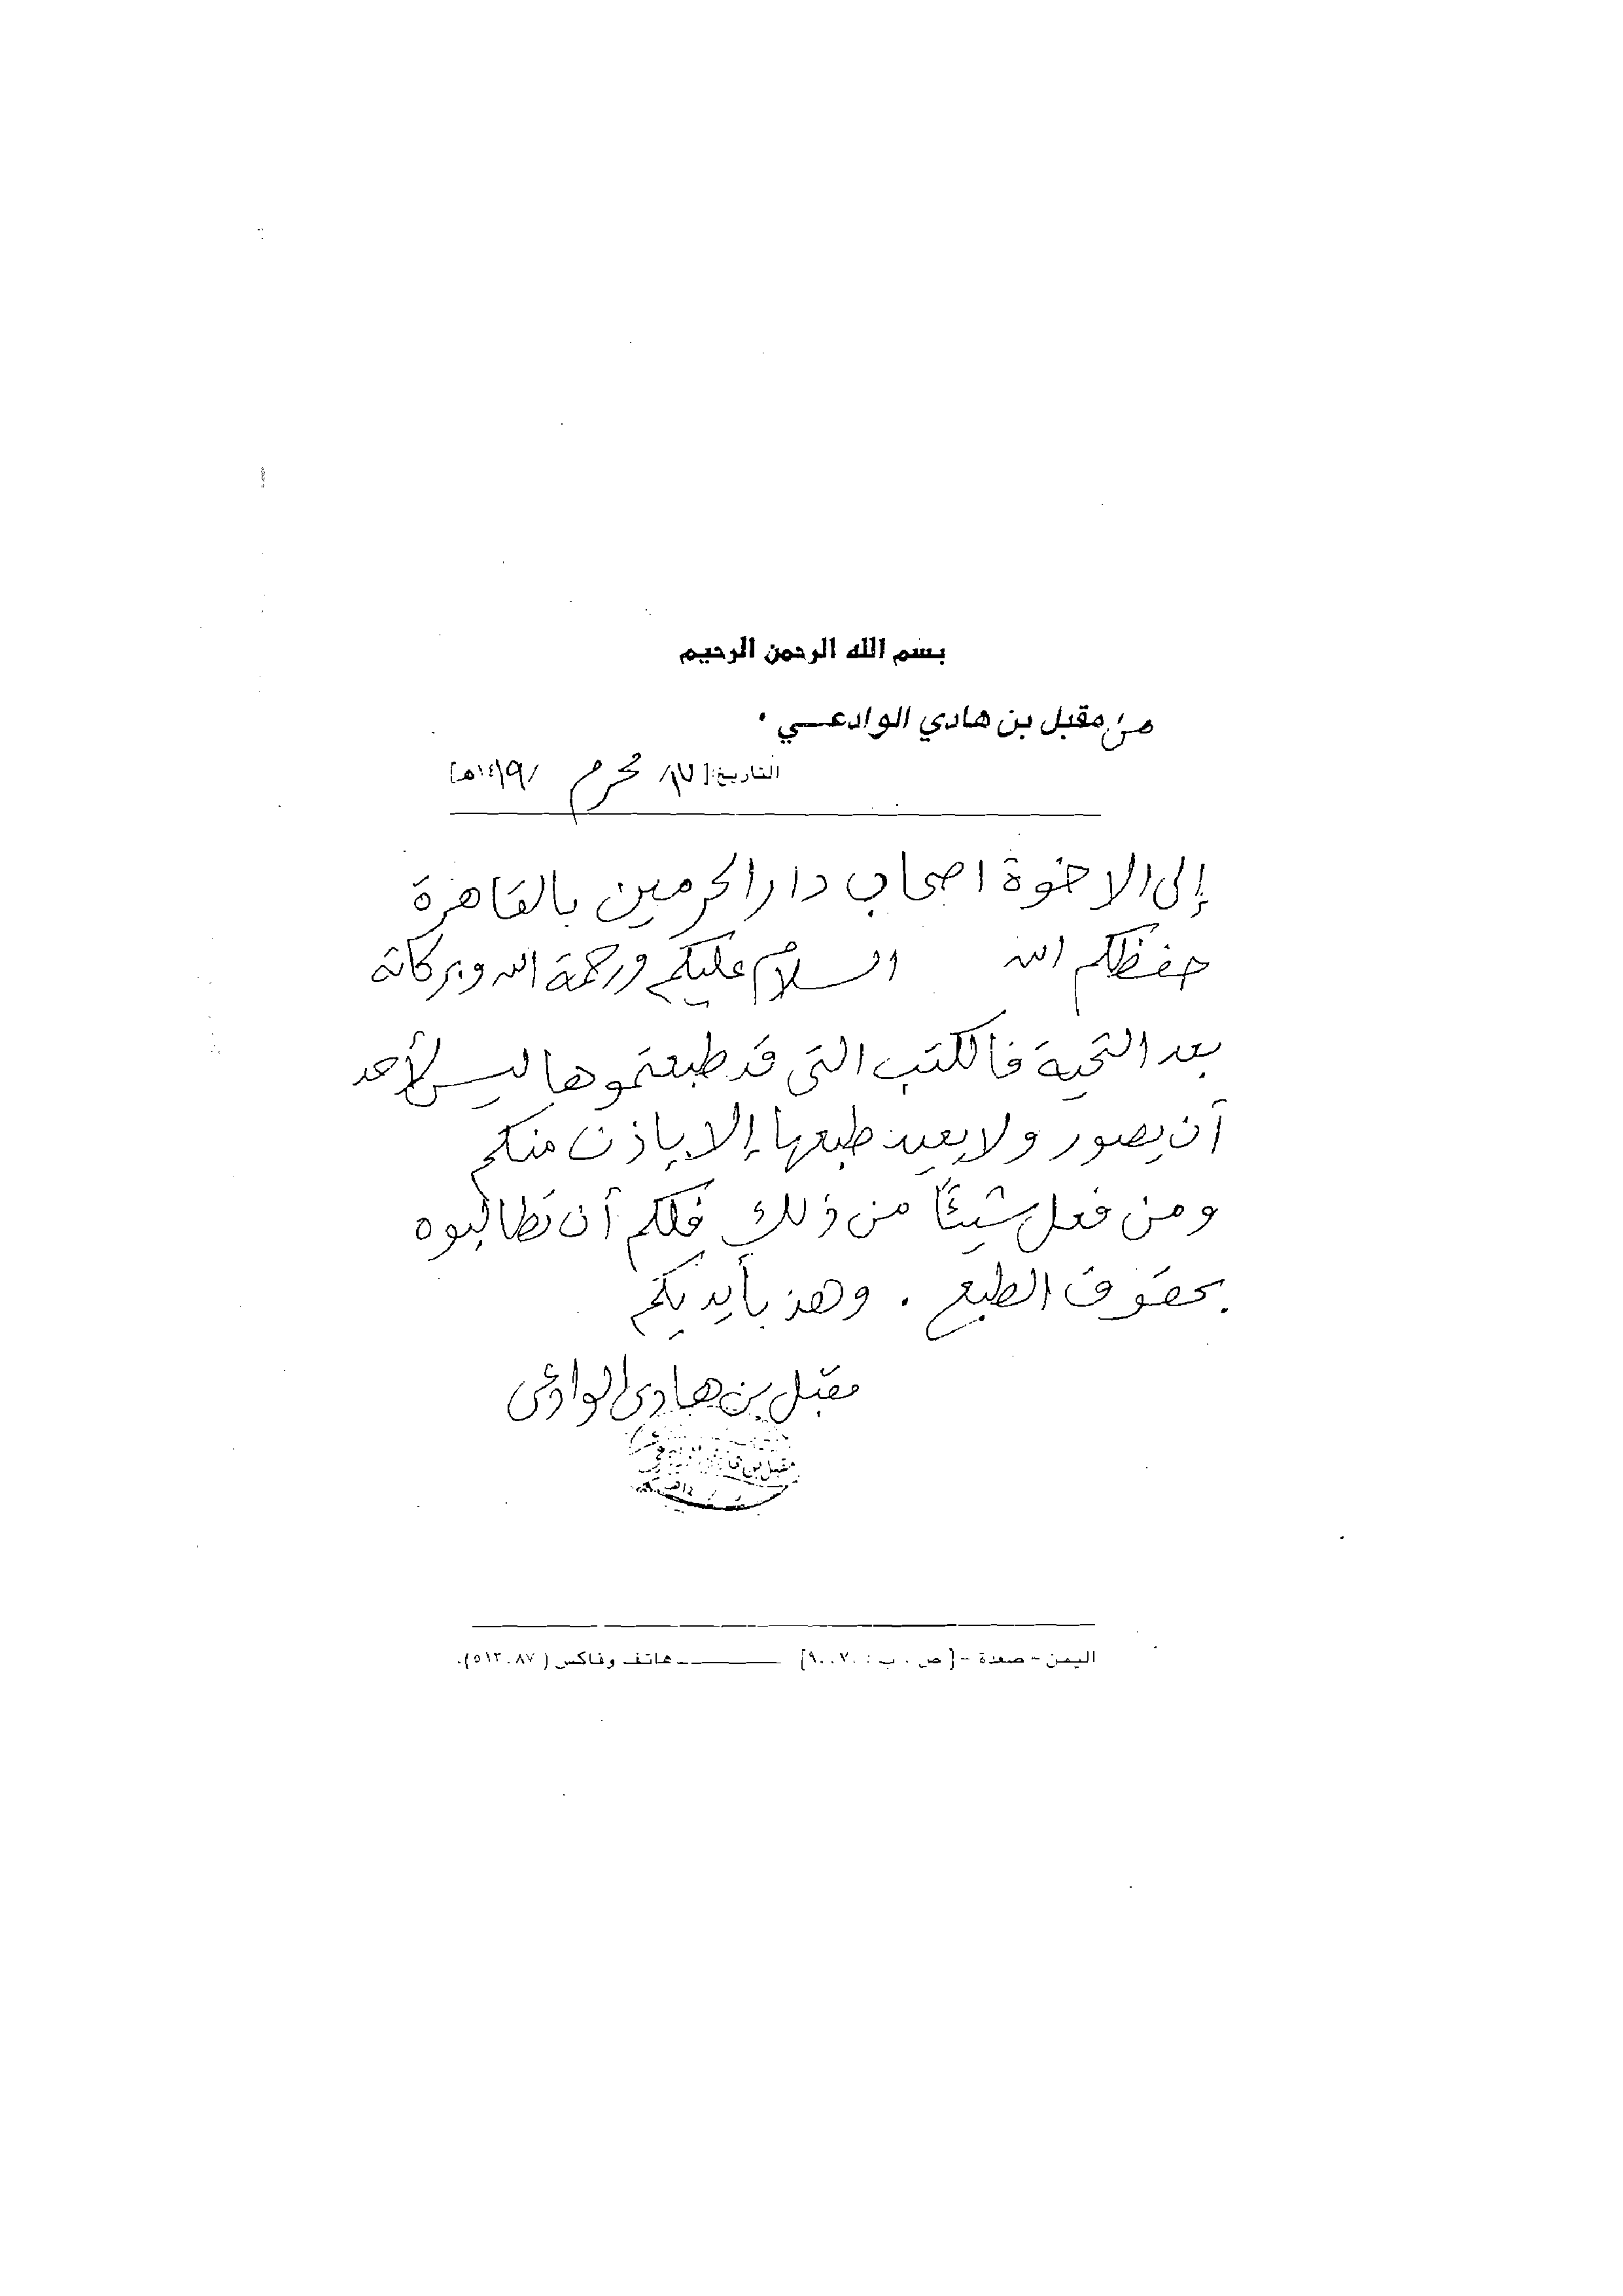 بسم الله الرحمن الرحيم
من مقبل بن هادي الوادعي .
التاريخ: [١٧/ محرم /١٤١٩هـ]
إلى الاخوة اصحاب دار الحرمين بالقاهرة
حفظكم الله السلام عليكم ورحمة الله وبركاته
بعد التحية فالكتب التى قد طبعتموها ليس لأحد
أن يصور ولا يعيد طبعها إلا بإذن منكم
ومن فعل شيئاً من ذلك فلكم أن تطالبوه
بحقوق الطبع . وهذ بأيديكم
مقبل بن هادى الوادعى
مقبل بن
اليمن - صعدة - [ص . ب : ٩٠٠٧٠] هاتف وفاكس (٥١٣٠٨٧).